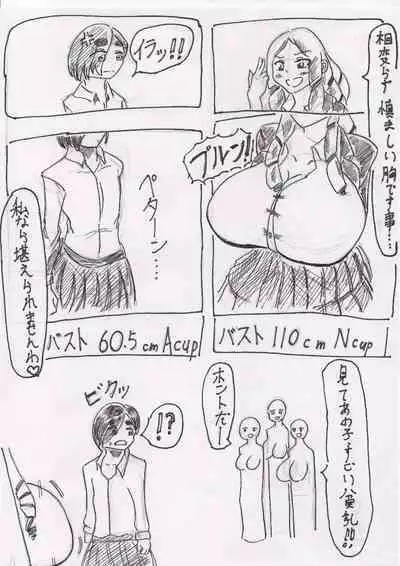 相変らず慎ましい胸です事…
プルン!!
バスト 110cm Ncup
イラッ!!
ペターン……
私なら堪えられませんわ♡
バスト 60.5cm Acup
見てあの子すごい貧乳!!
ホントだー
ビクッ
!?